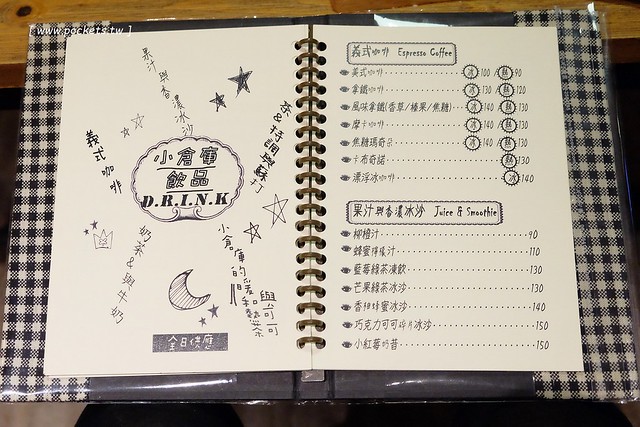 [ www.pockets.tw ]
果汁與香濃冰沙
茶&特調與蘇打
義式咖啡
小倉庫
飲品
D.R.I.N.K
奶茶&與牛奶
小倉庫的暖
與可可
全日供應
義式咖啡 Espresso Coffee
美式咖啡 冰 100 / 熱 90
拿鐵咖啡 冰 130 / 熱 120
風味拿鐵(香草/榛果/焦糖) 冰 140 / 熱 130
摩卡咖啡 冰 140 / 熱 130
焦糖瑪奇朵 冰 140 / 熱 130
卡布奇諾 熱 130
漂浮冰咖啡 冰 140
果汁與香濃冰沙 Juice & Smoothie
柳橙汁 90
蜂蜜檸檬汁 110
藍莓綠茶凍飲 130
芒果綠茶冰沙 130
香柚蜂蜜冰沙 140
巧克力可可碎片冰沙 150
小紅莓奶昔 150